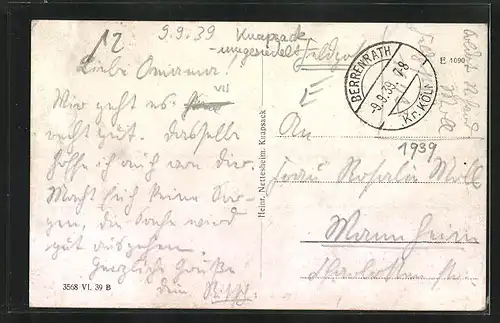 12
9.9.39 Knapsack
-umgesiedelt
Feldpost
Liebe Omama!
VII
Mir geht es
recht gut. Dasselbe
hoffe ich auch von Dir.
Macht Euch keine Sor-
gen, die Sache wird
gut ausgehen.
Herzliche Grüße
Dein
3568 VI. 39 B
Heinr. Nettesheim, Knapsack
BERRENRATH
-9.9.39. 7-8
Kr. KÖLN
E 1090
An
1939
Frau Rosalie Moll
Mannheim